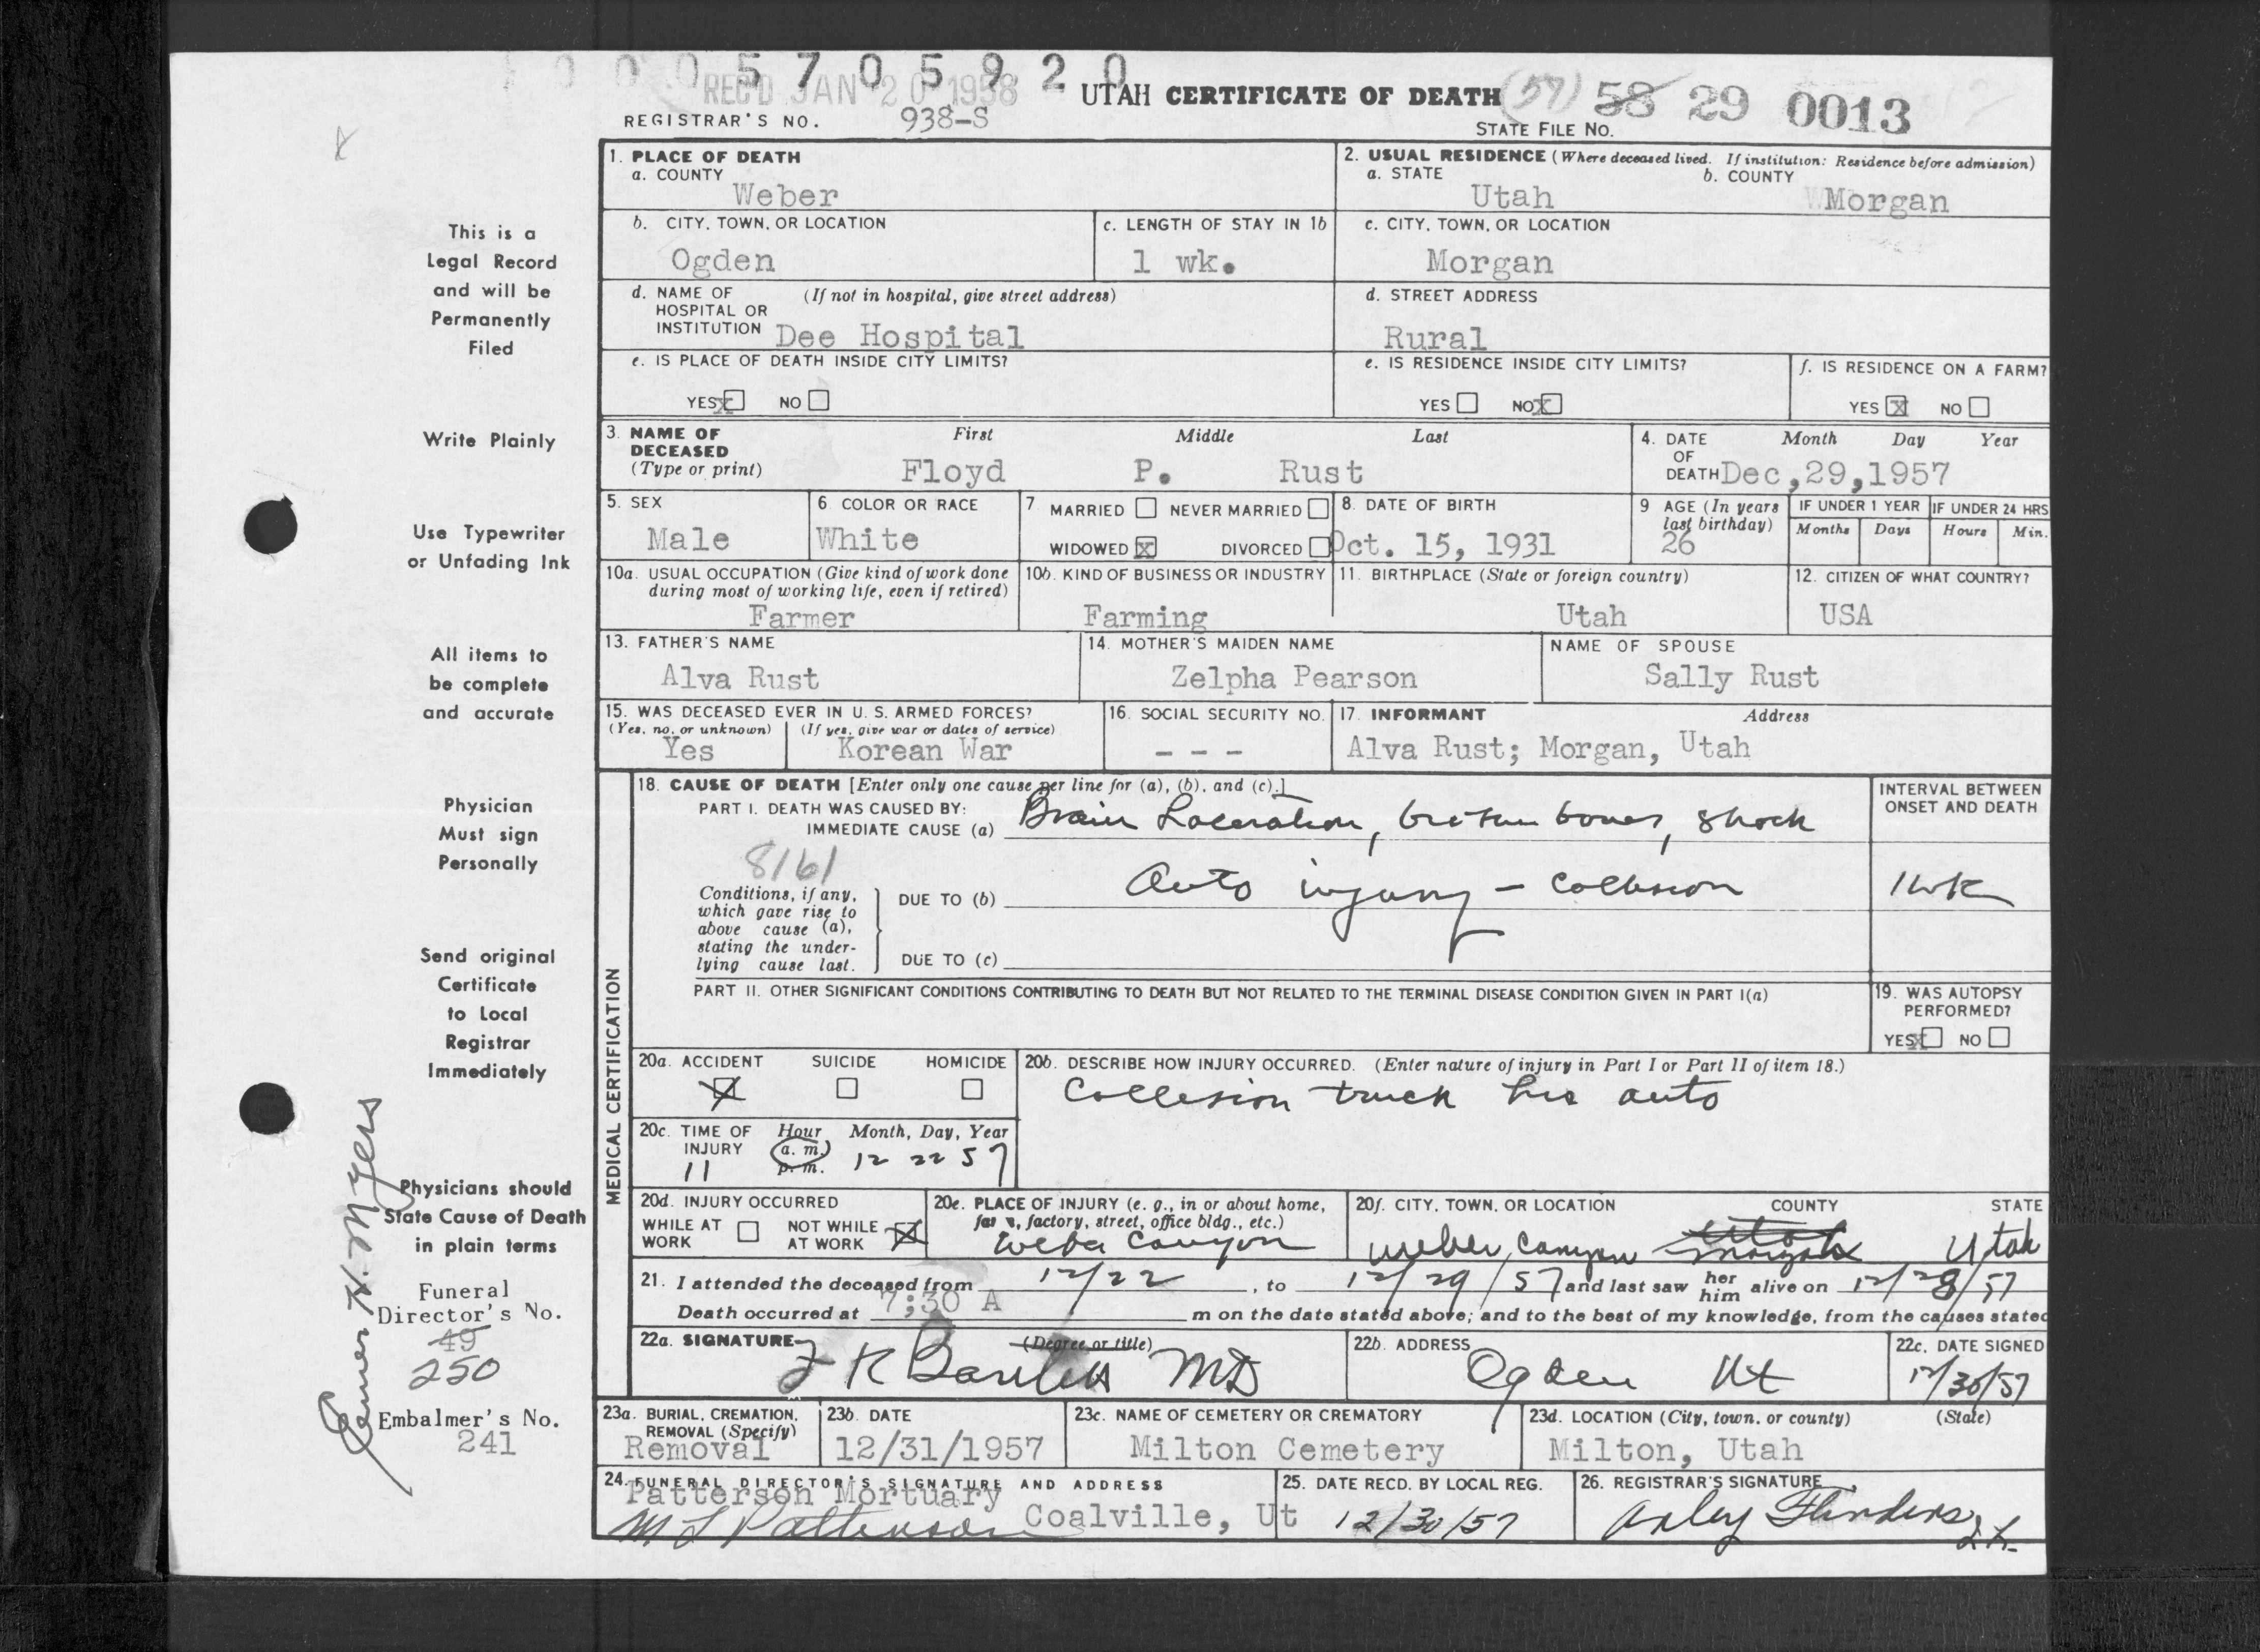 0 0 0 5 7 0 5 9 2 0
REC'D JAN 20 1958
UTAH CERTIFICATE OF DEATH (57) 58 29 0013
REGISTRAR'S NO. 938-S
STATE FILE NO.
1. PLACE OF DEATH
a. COUNTY
Weber
2. USUAL RESIDENCE (Where deceased lived. If institution: Residence before admission)
a. STATE b. COUNTY
Utah Morgan
This is a
Legal Record
and will be
Permanently
Filed
b. CITY, TOWN, OR LOCATION
Ogden
c. LENGTH OF STAY IN 1b
1 wk.
c. CITY, TOWN, OR LOCATION
Morgan
d. NAME OF (If not in hospital, give street address)
HOSPITAL OR
INSTITUTION Dee Hospital
d. STREET ADDRESS
Rural
e. IS PLACE OF DEATH INSIDE CITY LIMITS?
YES X NO
e. IS RESIDENCE INSIDE CITY LIMITS?
YES NO X
f. IS RESIDENCE ON A FARM?
YES X NO
Write Plainly
3. NAME OF First Middle Last
DECEASED
(Type or print) Floyd P. Rust
4. DATE Month Day Year
OF
DEATH Dec,29,1957
Use Typewriter
or Unfading Ink
5. SEX
Male
6 COLOR OR RACE
White
7 MARRIED NEVER MARRIED
WIDOWED X DIVORCED
8. DATE OF BIRTH
Oct. 15, 1931
9 AGE (In years
last birthday)
26
IF UNDER 1 YEAR IF UNDER 24 HRS
Months Days Hours Min.
10a. USUAL OCCUPATION (Give kind of work done
during most of working life, even if retired)
Farmer
10b. KIND OF BUSINESS OR INDUSTRY
Farming
11. BIRTHPLACE (State or foreign country)
Utah
12. CITIZEN OF WHAT COUNTRY?
USA
All items to
be complete
and accurate
13. FATHER'S NAME
Alva Rust
14. MOTHER'S MAIDEN NAME
Zelpha Pearson
NAME OF SPOUSE
Sally Rust
15. WAS DECEASED EVER IN U. S. ARMED FORCES?
(Yes, no, or unknown) (If yes, give war or dates of service)
Yes Korean War
16. SOCIAL SECURITY NO.
- - -
17. INFORMANT Address
Alva Rust; Morgan, Utah
Physician
Must sign
Personally
MEDICAL CERTIFICATION
18. CAUSE OF DEATH [Enter only one cause per line for (a), (b), and (c).]
PART I. DEATH WAS CAUSED BY:
IMMEDIATE CAUSE (a) Brain Laceration, broken bones, shock
INTERVAL BETWEEN
ONSET AND DEATH
8161
Conditions, if any,
which gave rise to
above cause (a),
stating the under-
lying cause last.
DUE TO (b) Auto injury - collision 1 wk
DUE TO (c)
Send original
Certificate
to Local
Registrar
Immediately
PART II. OTHER SIGNIFICANT CONDITIONS CONTRIBUTING TO DEATH BUT NOT RELATED TO THE TERMINAL DISEASE CONDITION GIVEN IN PART I(a)
19. WAS AUTOPSY
PERFORMED?
YES X NO
20a. ACCIDENT SUICIDE HOMICIDE
X
20b. DESCRIBE HOW INJURY OCCURRED. (Enter nature of injury in Part I or Part II of item 18.)
Collision truck his auto
20c. TIME OF Hour Month, Day, Year
INJURY a. m.
11 p. m. 12 22 57
Physicians should
State Cause of Death
in plain terms
20d. INJURY OCCURRED
WHILE AT WORK NOT WHILE AT WORK X
20e. PLACE OF INJURY (e. g., in or about home,
farm, factory, street, office bldg., etc.)
Weber Canyon
20f. CITY, TOWN, OR LOCATION COUNTY STATE
Weber Canyon Morgan Utah
21. I attended the deceased from 12/22, to 12/29/57 and last saw her him alive on 12/28/57
Death occurred at 7;30 A m on the date stated above; and to the best of my knowledge, from the causes stated
Funeral
Director's No.
49
250
Embalmer's No.
241
22a. SIGNATURE (Degree or title)
MD
22b. ADDRESS
Ogden Ut
22c. DATE SIGNED
12/30/57
23a. BURIAL, CREMATION,
REMOVAL (Specify)
Removal
23b. DATE
12/31/1957
23c. NAME OF CEMETERY OR CREMATORY
Milton Cemetery
23d. LOCATION (City, town, or county) (State)
Milton, Utah
24. FUNERAL DIRECTOR'S SIGNATURE AND ADDRESS
Patterson Mortuary
M L Patterson Coalville, Ut
25. DATE RECD. BY LOCAL REG.
12/30/57
26. REGISTRAR'S SIGNATURE
Arley Flinders